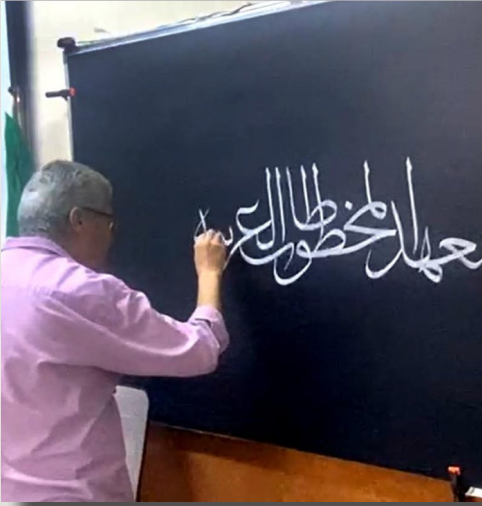 معهد المخطوطات العربية